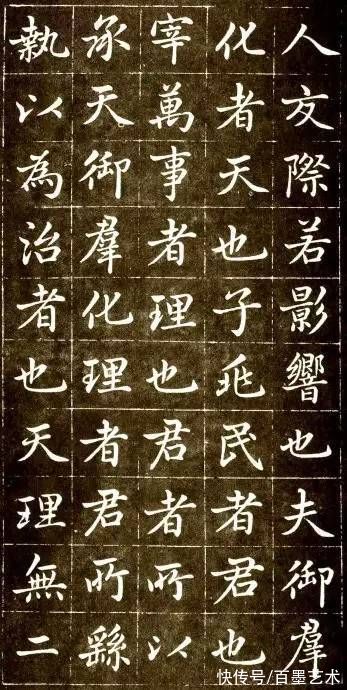 人交際若影響也夫御羣
化者天也子兆民者君也
宰萬事者理也君者所以
承天御羣化理者君所繇
執以為治者也天理無二
快传号/百墨艺术